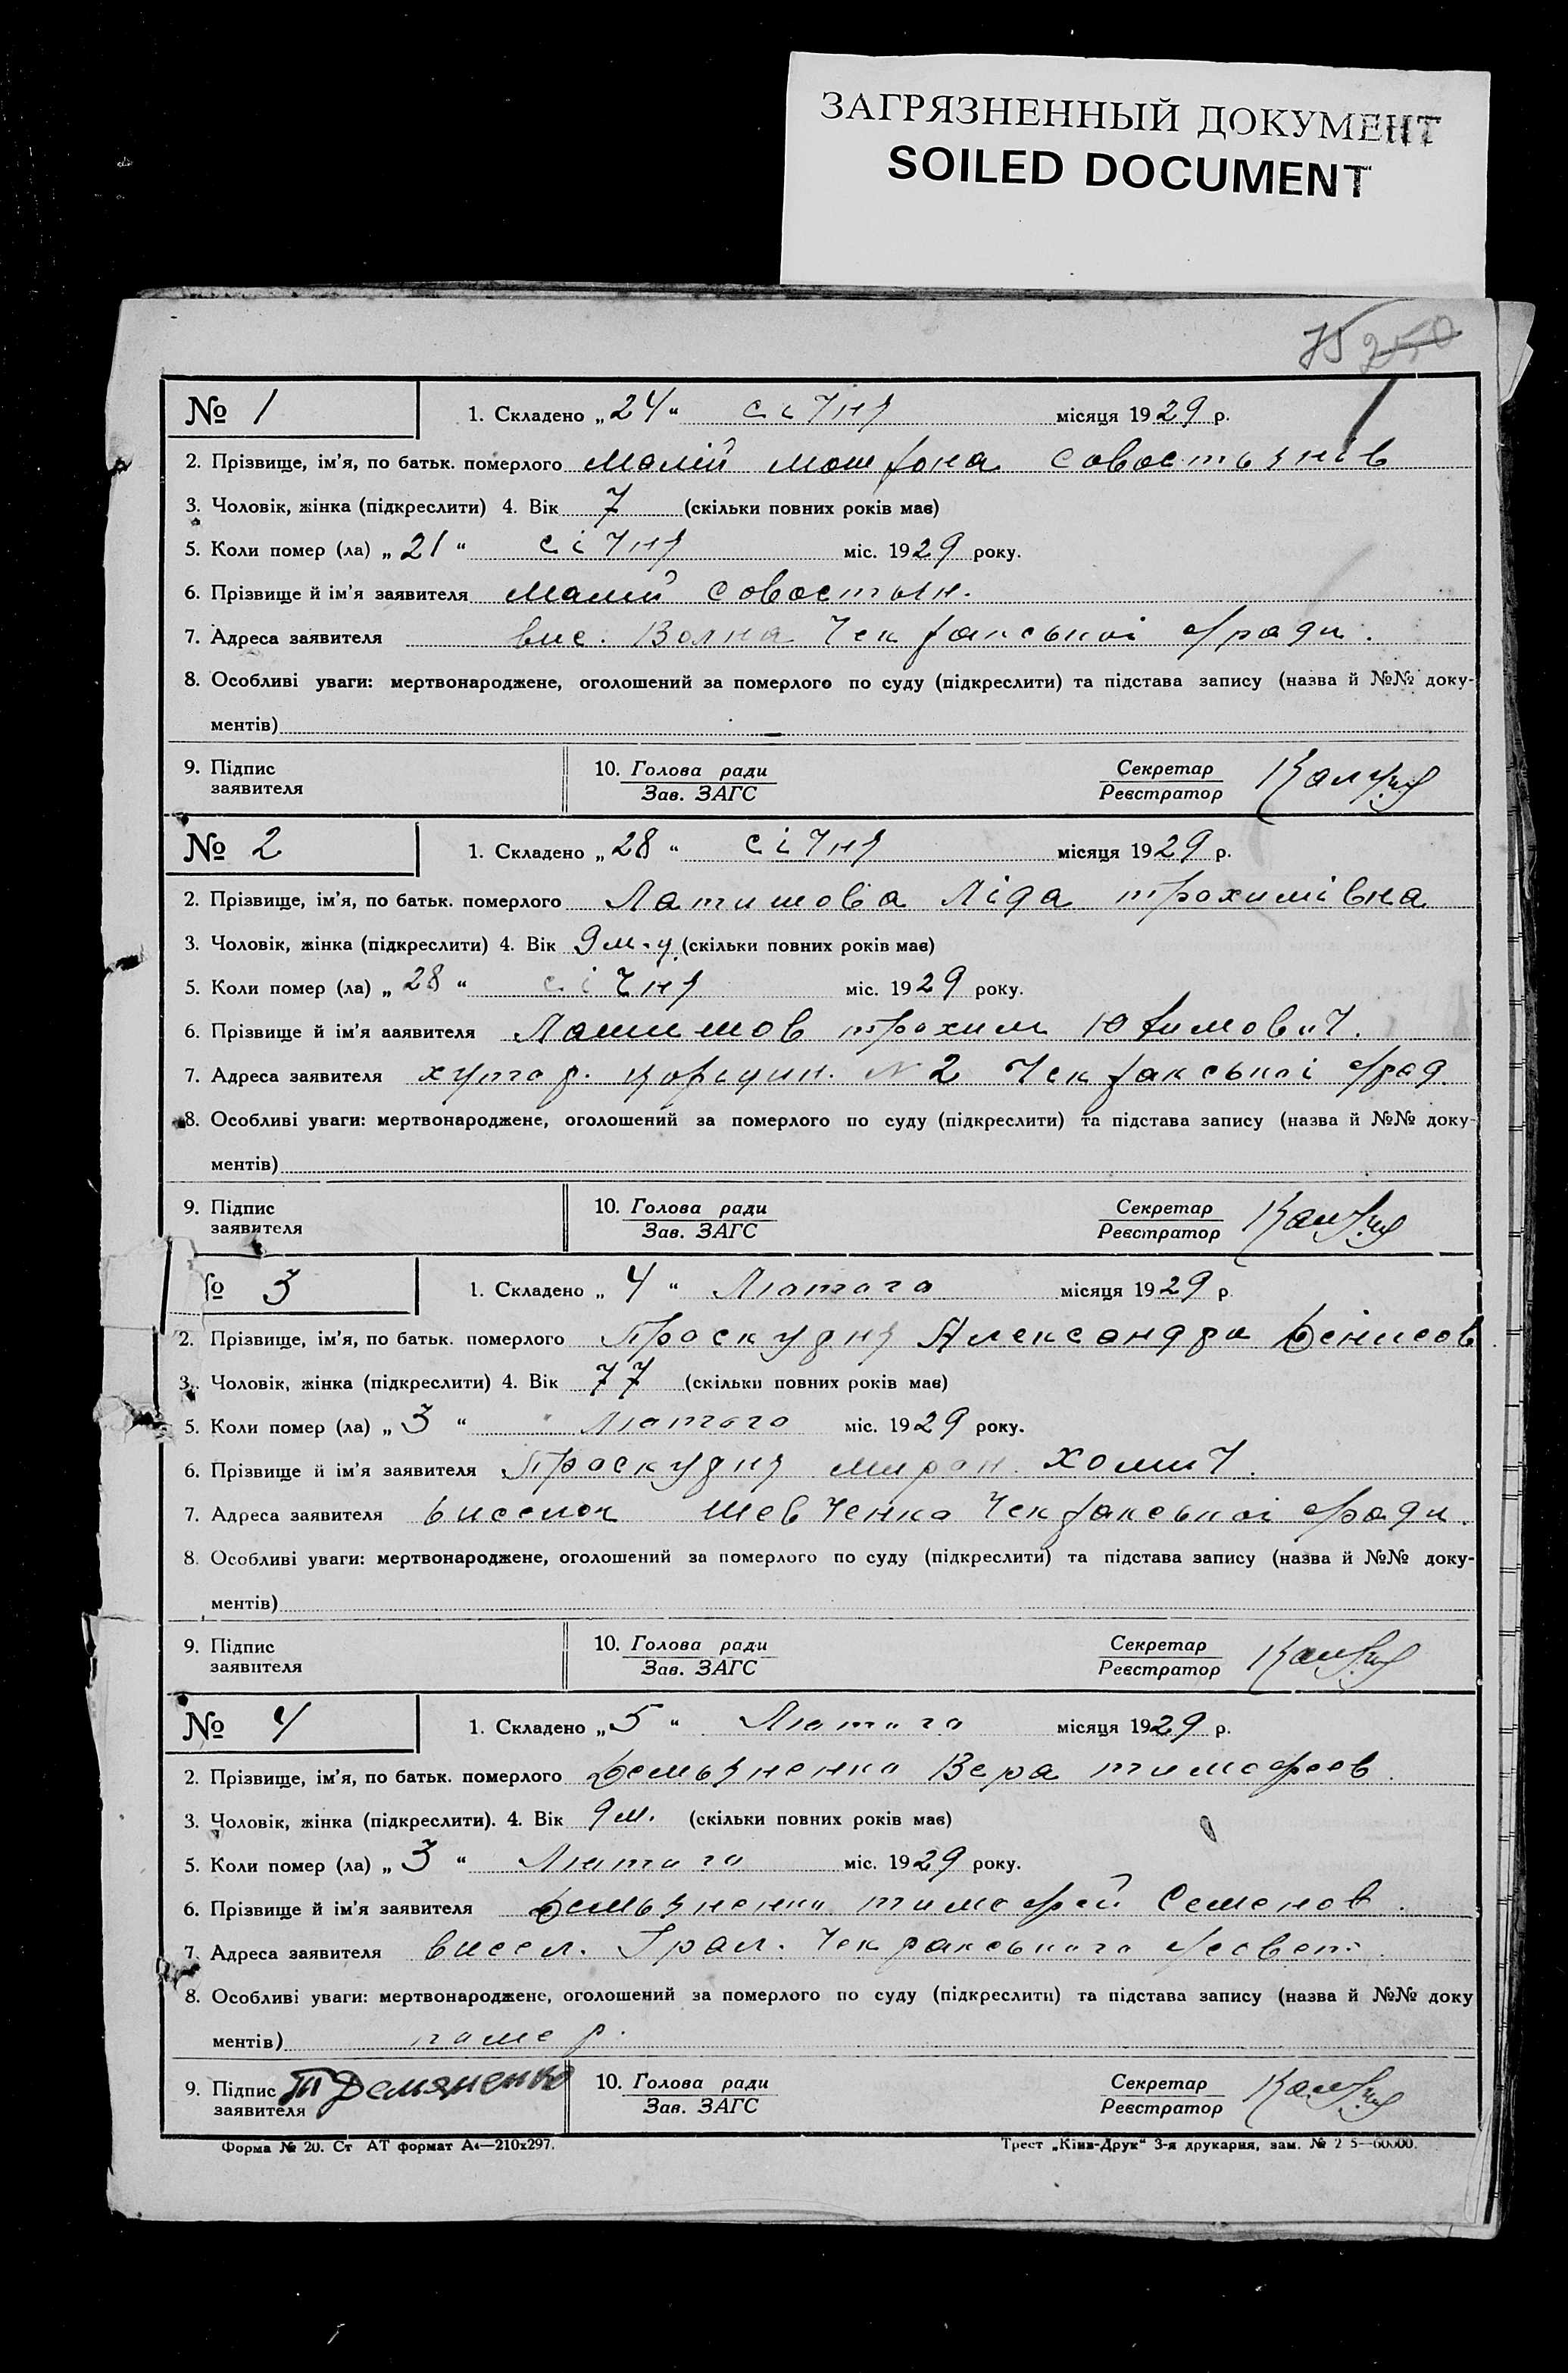 ЗАГРЯЗНЕННЫЙ ДОКУМЕНТ
SOILED DOCUMENT
75 250
№ 1 1. Складено „24“ січня місяця 1929 р.
2. Прізвище, ім'я, по батьк. померлого Малій Мотрона Совостьянів
3. Чоловік, жінка (підкреслити) 4. Вік 7 (скільки повних років має)
5. Коли помер (ла) „21“ січня міс. 1929 року.
6. Прізвище й ім'я заявителя Малий Совостьян.
7. Адреса заявителя вис. Волна Чекракської с/ради.
8. Особливі уваги: мертвонароджене, оголошений за померлого по суду (підкреслити) та підстава запису (назва й №№ доку-
ментів)
9. Підпис заявителя 10. Голова ради Зав. ЗАГС Секретар Реєстратор
№ 2 1. Складено „28“ січня місяця 1929 р.
2. Прізвище, ім'я, по батьк. померлого Латишова Ліда Трохимівна
3. Чоловік, жінка (підкреслити) 4. Вік 9 м-ц. (скільки повних років має)
5. Коли помер (ла) „28“ січня міс. 1929 року.
6. Прізвище й ім'я заявителя Латишов Трохим Юхимович.
7. Адреса заявителя хутор. № 2 Чекракської с/рад.
8. Особливі уваги: мертвонароджене, оголошений за померлого по суду (підкреслити) та підстава запису (назва й №№ доку-
ментів)
9. Підпис заявителя 10. Голова ради Зав. ЗАГС Секретар Реєстратор
№ 3 1. Складено „4“ Лютого місяця 1929 р.
2. Прізвище, ім'я, по батьк. померлого Проскурня Александра Денисов
3. Чоловік, жінка (підкреслити) 4. Вік 77 (скільки повних років має)
5. Коли помер (ла) „3“ Лютого міс. 1929 року.
6. Прізвище й ім'я заявителя Проскурня Мирон Хомич.
7. Адреса заявителя виселок Шевченка Чекракської с/ради.
8. Особливі уваги: мертвонароджене, оголошений за померлого по суду (підкреслити) та підстава запису (назва й №№ доку-
ментів)
9. Підпис заявителя 10. Голова ради Зав. ЗАГС Секретар Реєстратор
№ 4 1. Складено „5“ Лютого місяця 1929 р.
2. Прізвище, ім'я, по батьк. померлого Демьяненко Вера Тимофеев
3. Чоловік, жінка (підкреслити). 4. Вік 9 м. (скільки повних років має)
5. Коли помер (ла) „3“ Лютого міс. 1929 року.
6. Прізвище й ім'я заявителя Демьяненко Тимофей Семенов.
7. Адреса заявителя висел. Чекракського с/совет.
8. Особливі уваги: мертвонароджене, оголошений за померлого по суду (підкреслити) та підстава запису (назва й №№ доку
ментів) помер.
9. Підпис заявителя Т Демяненко 10. Голова ради Зав. ЗАГС Секретар Реєстратор
Форма № 20. Ст АТ формат А4—210x297. Трест „Київ-Друк“ 3-я друкарня, зам. № 2 5—60000.